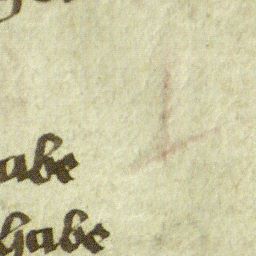 abe
habe